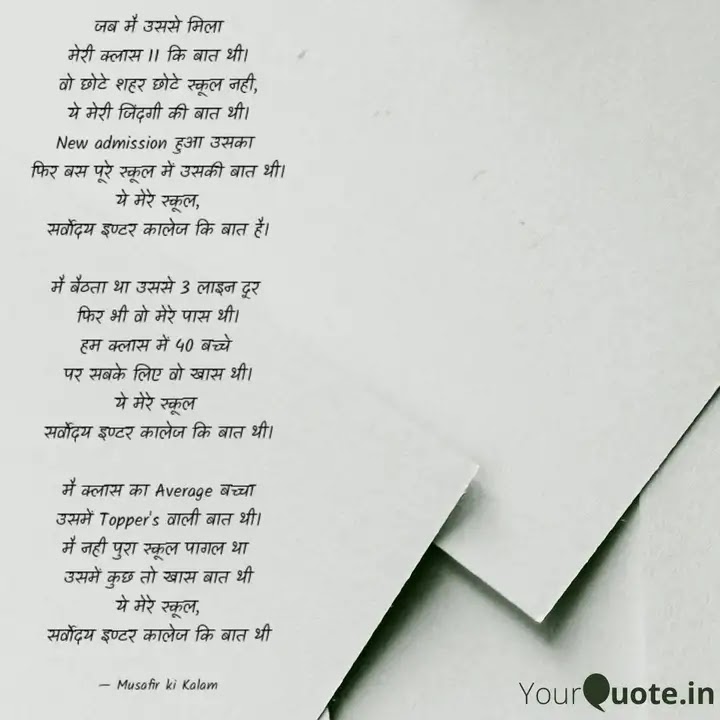 जब मै उससे मिला
मेरी क्लास 11 कि बात थी।
वो छोटे शहर छोटे स्कूल नही,
ये मेरी जिंदगी की बात थी।
New admission हुआ उसका
फिर बस पूरे स्कूल में उसकी बात थी।
ये मेरे स्कूल,
सर्वोदय इण्टर कालेज कि बात है।
मै बैठता था उससे 3 लाइन दूर
फिर भी वो मेरे पास थी।
हम क्लास में 40 बच्चे
पर सबके लिए वो खास थी।
ये मेरे स्कूल
सर्वोदय इण्टर कालेज कि बात थी।
मै क्लास का Average बच्चा
उसमें Topper's वाली बात थी।
मै नही पुरा स्कूल पागल था
उसमें कुछ तो खास बात थी
ये मेरे स्कूल,
सर्वोदय इण्टर कालेज कि बात थी
— Musafir ki Kalam
YourQuote.in